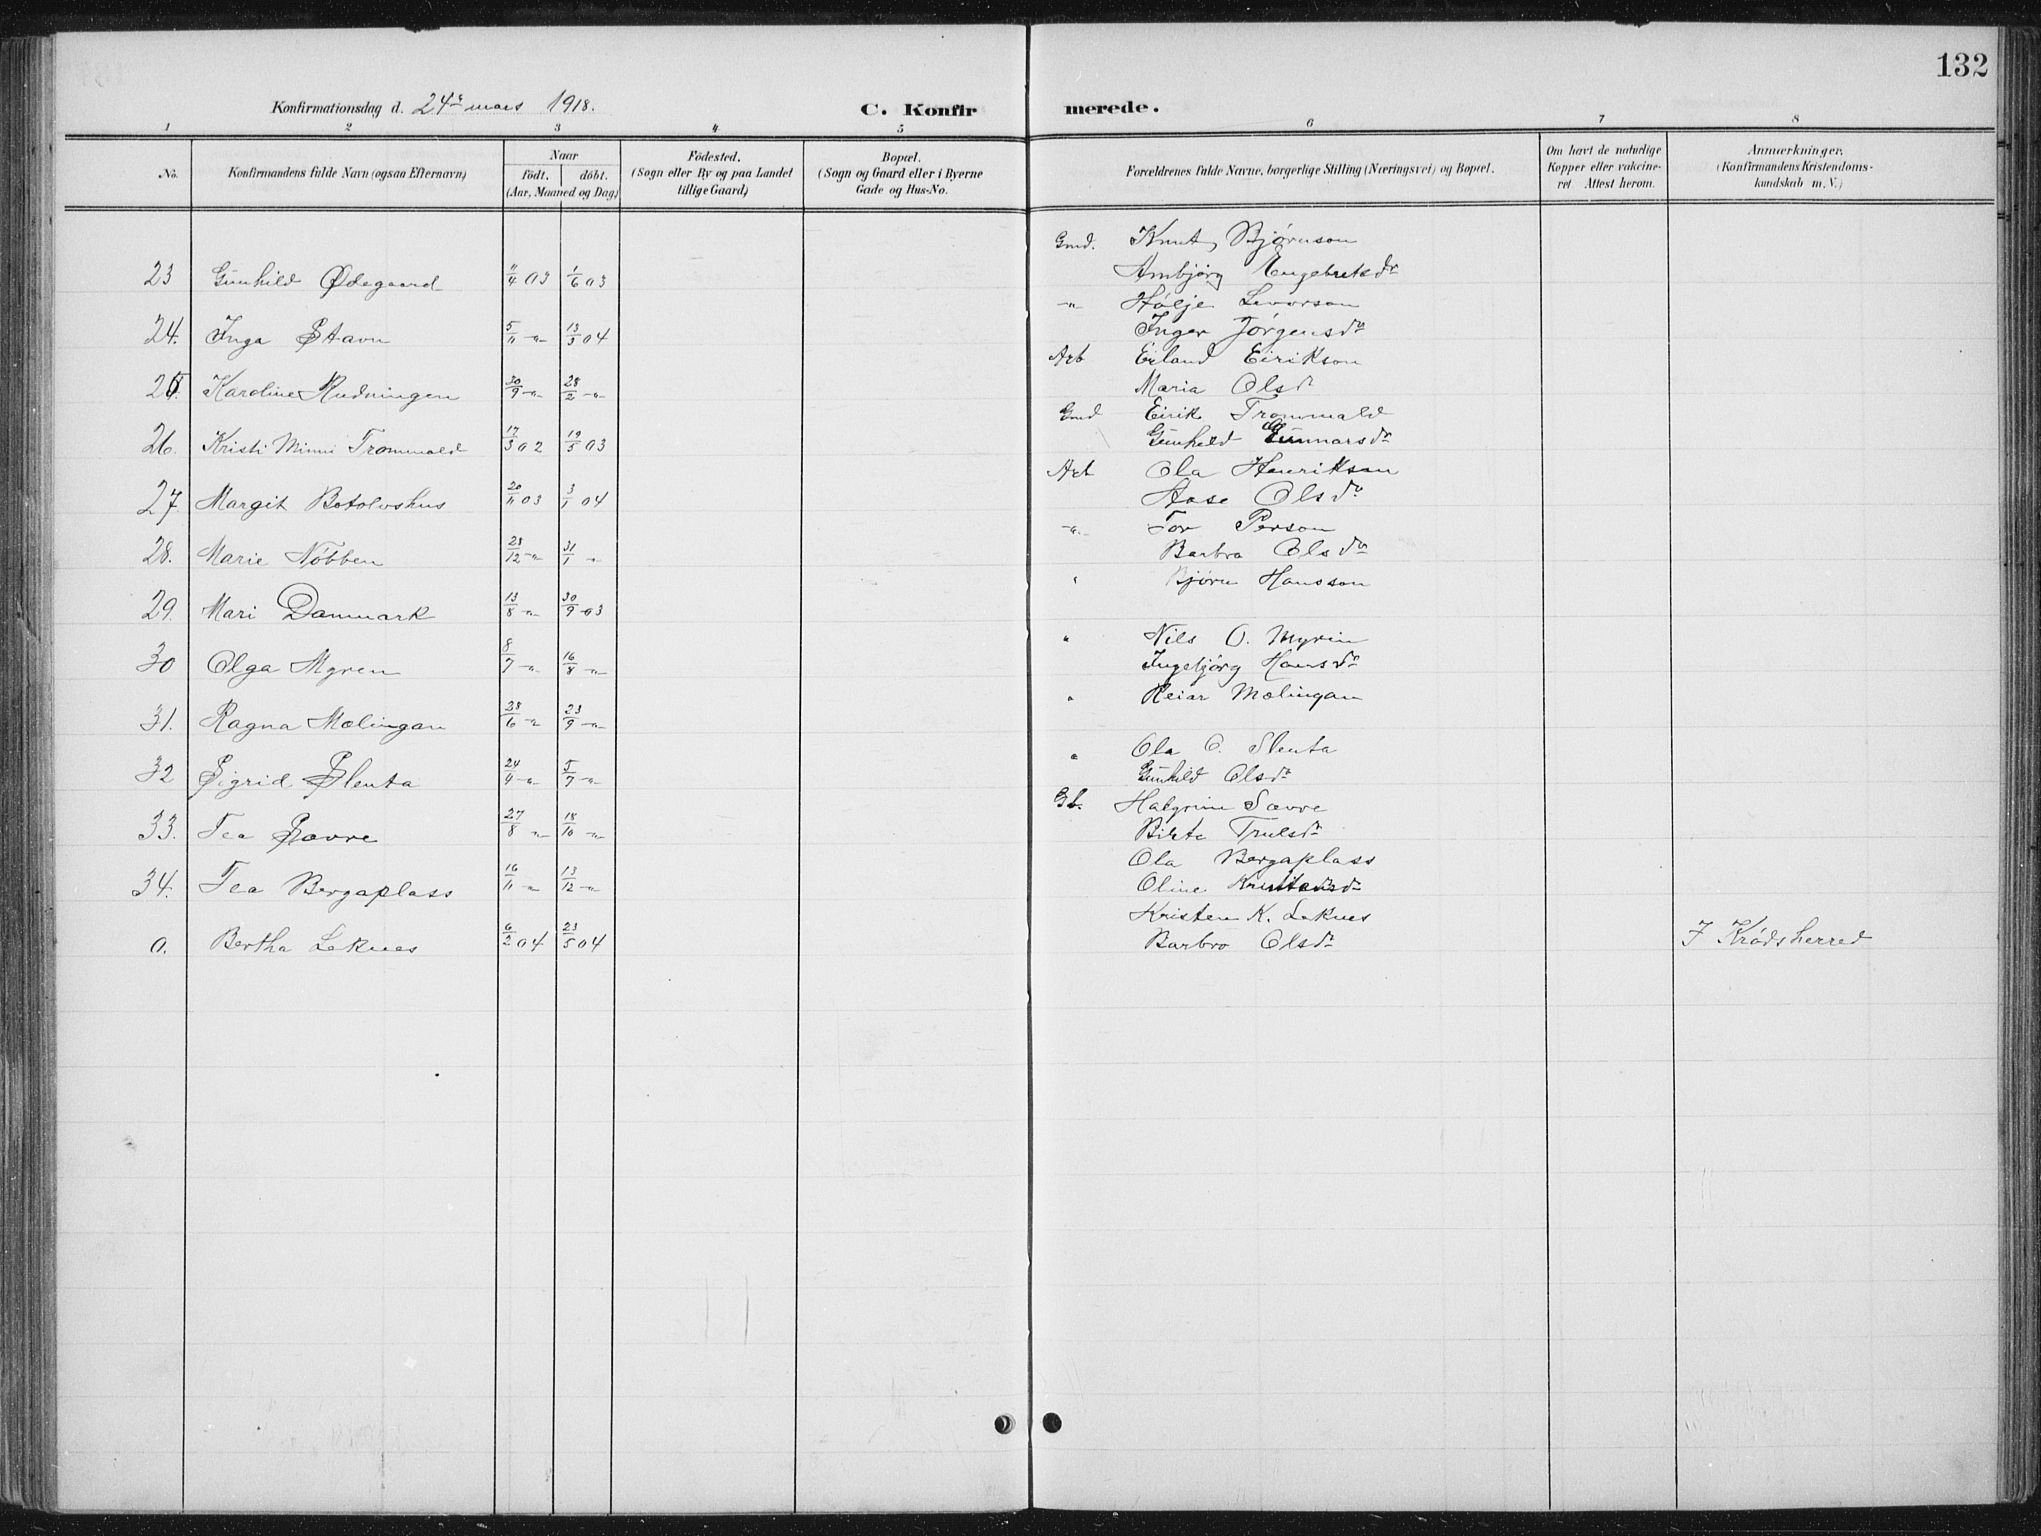 132
Konfirmationsdag d. 24de mars 1918.
C. Konfirmerede.
1 2 3 4 5 6 7 8
No.
Konfirmandens fulde Navn (ogsaa Efternavn)
Naar
födt. döbt.
(Aar, Maaned og Dag)
Födested.
(Sogn eller By og paa Landet
tillige Gaard)
Bopæl.
(Sogn og Gaard eller i Byerne
Gade og Hus-No.
Forældrenes fulde Navne, borgerlige Stilling (Næringsvei) og Bopæl.
Om havt de naturlige
Kopper eller vakcine-
ret Attest herom.
Anmærkninger,
(Konfirmandens Kristendoms-
kundskab m. V.)
Gmd. Knut Bjørnson
23 Gunhild Ødegaard 11/4 03 1/6 03 Ambjørg Engebretsdr
-"- Hølje Levorson
24. Inga Stavn 5/11 -"- 13/3 04 Inger Jörgensdr
Arb Erland Eirikson
25. Karoline Rudningen 30/9 -"- 28/2 -"- Maria Olsdr
Gmd Eirik Trommald
26. Kristi Minni Trommald 17/3 02 19/5 03 Gunhild Gunnarsdr
Arb Ola Henrikson
27. Margit Botolvshus 20/11 03 3/1 04 Aase Olsdr
-"- Tor Person
28. Marie Nöbben 28/12 -"- 31/1 " Barbro Olsdr
" Bjørn Hansson
29. Mari Danmark 13/8 -"- 30/9 03
" Nils O. Myren
30 Olga Myren 8/7 -"- 16/8 -"- Ingebjörg Hansdr
" Reiar Mælingan
31. Ragna Mælingan 28/6 -"- 23/9 -"-
" Ola O. Slenta
32 Sigrid Slenta 24/4 -"- 5/7 -"- Gunhild Olsdr
Gb. Halgrim Sævre
33. Tea Sævre 27/8 -"- 18/10 -"- Birte Trulsdr
Ola Bergaplass
34. Tea Bergaplass 16/11 -"- 13/12 -"- Oline
Kristen K. Leknes
a. Bertha Leknes 6/2 04 23/5 04 Barbro Olsdr I Krödsherred